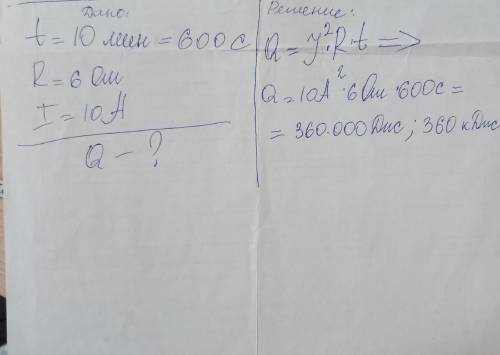 Дано:
t = 10 мин = 600 с
R = 6 Ом
I = 10 А
Q - ?
Решение:
Q = I²·R·t =>
Q = 10А²·6 Ом·600с =
= 360.000 Дж; 360 кДж